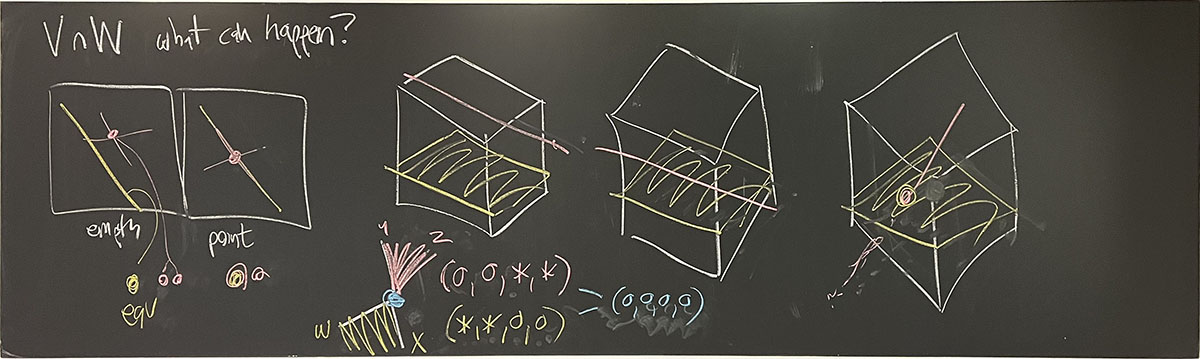 V ∩ W what can happen?
empty
point
eqn
y z
(0, 0, *, *)
(0, 0, 0, 0)
(*, *, 0, 0)
w x